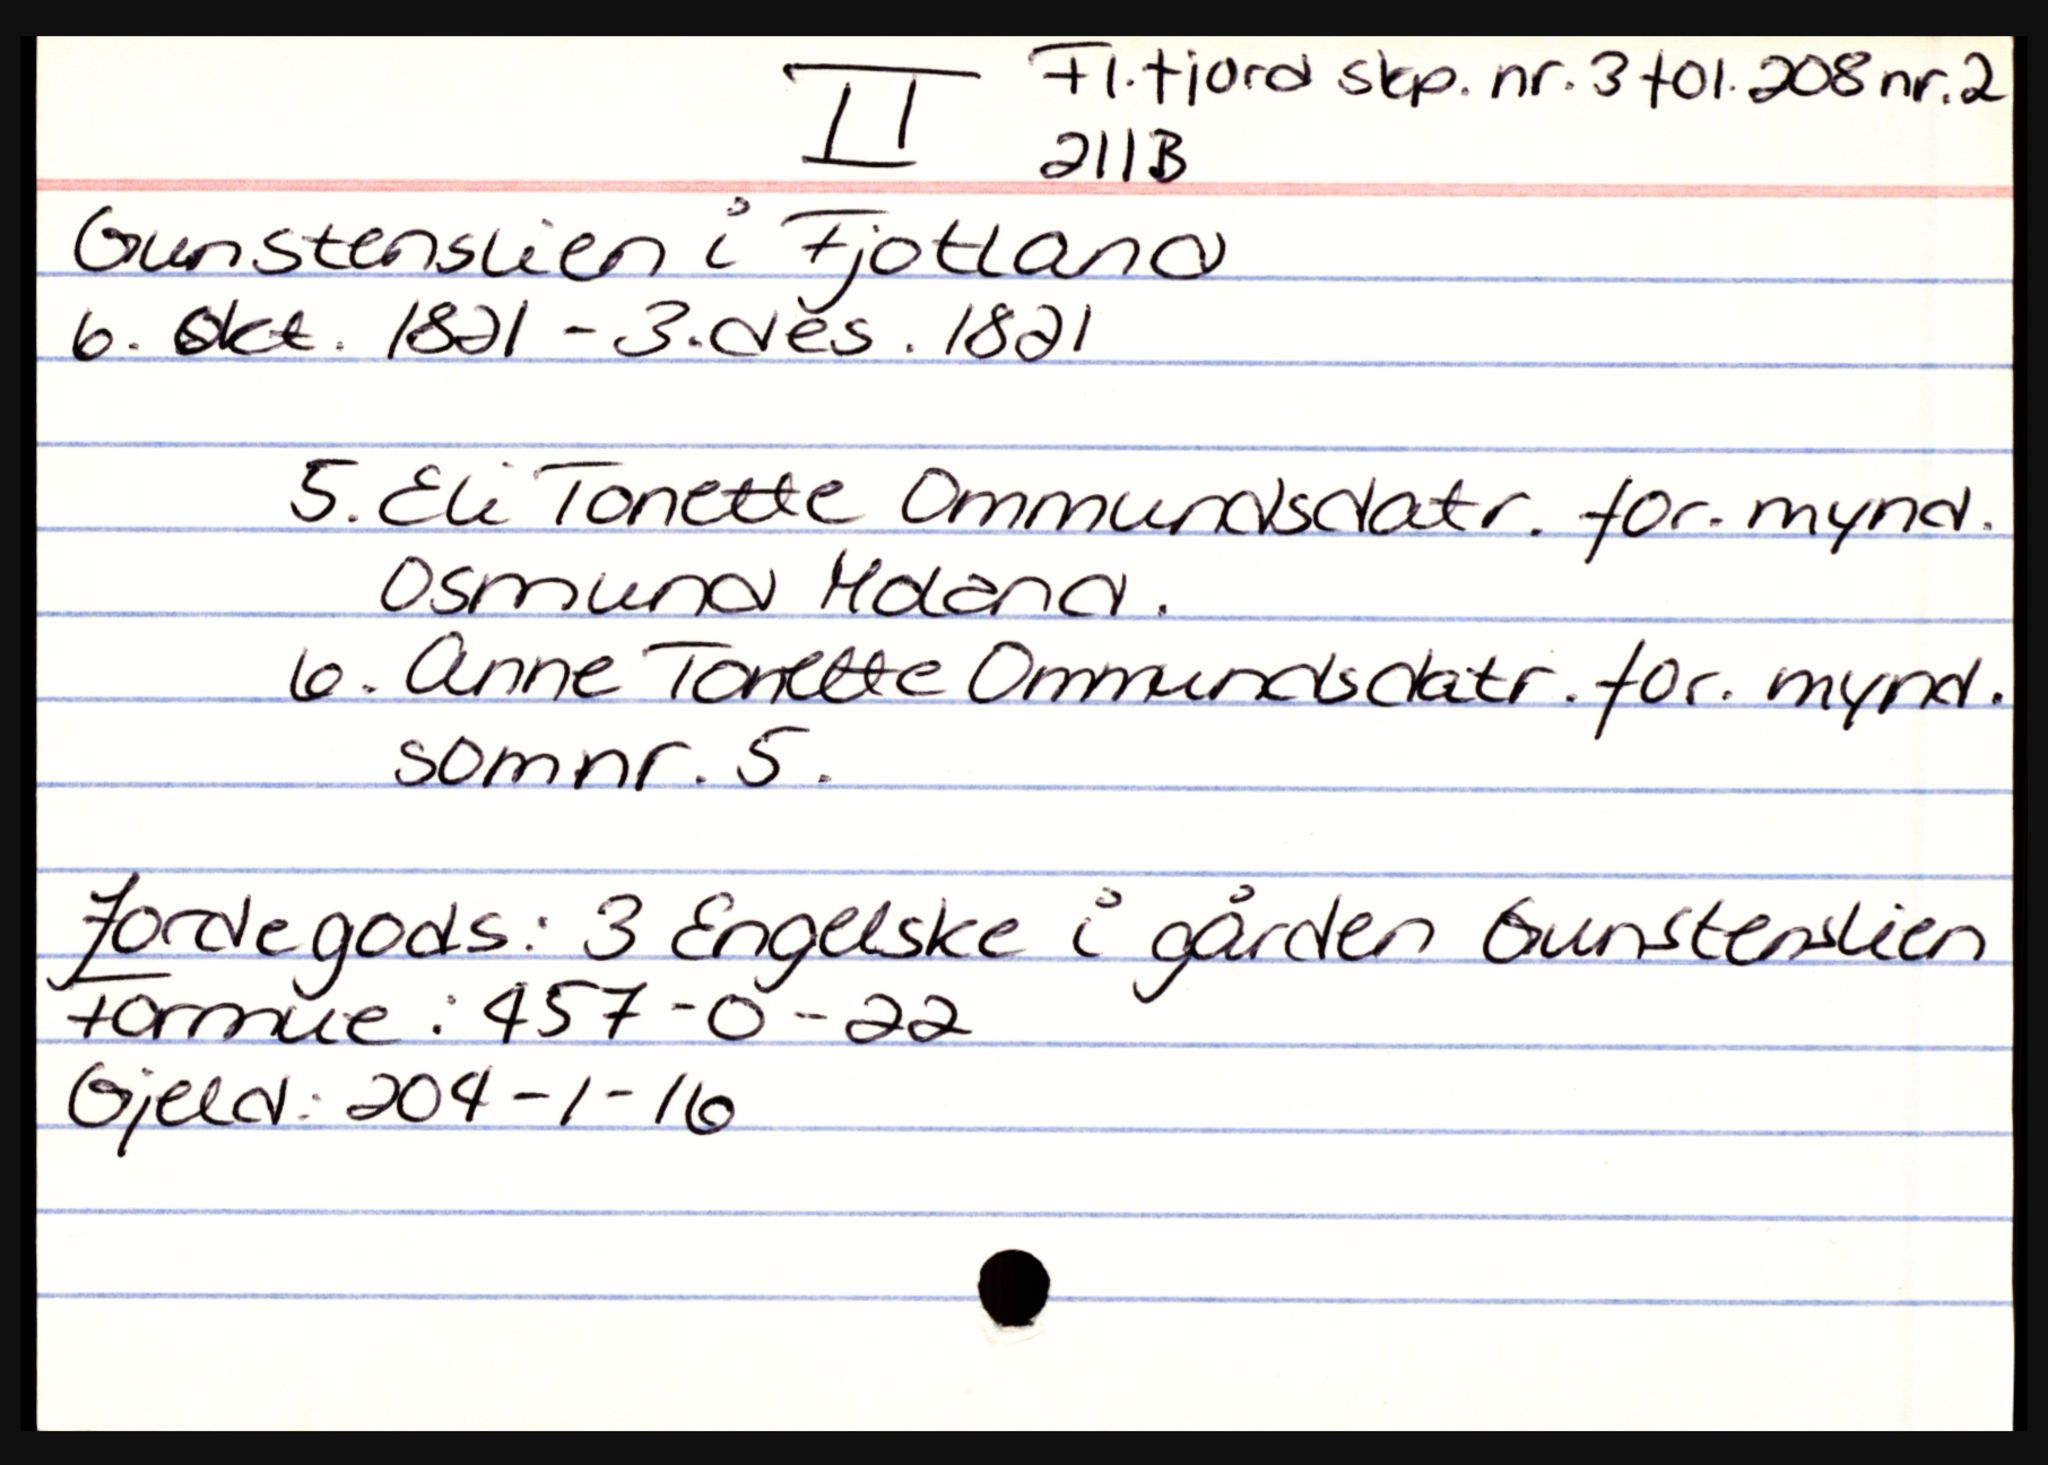 II Fl.fjord skp. nr. 3 fol. 208 nr. 2
211B
Gunstenslien i Fjotland
6. okt. 1821 - 3. des. 1821
5. Eli Tonette Ommundsdatr. for. mynd.
Osmund Moland.
6. Anne Tonette Ommundsdatr. for. mynd.
som nr. 5.
Jordegods: 3 Engelske i gården Gunstenslien
Formue: 457-0-22
Gjeld: 204-1-16